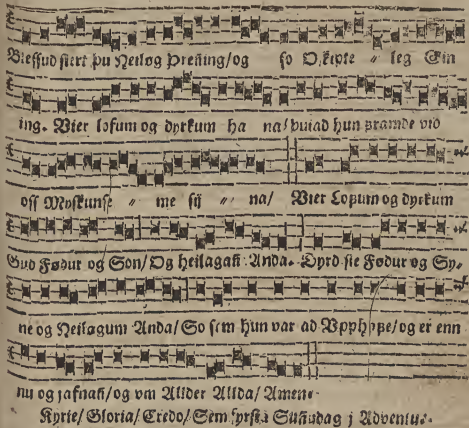 Blessud siert þu Heilog Þrening/og so Oskipte " leg Ein
ing. Vier lofum og dyrkum ha na/þuiad hun framde vid
oss Myskunse " me sij " na/ Vier Lopum og dyrkum
Gud Fødur og Son/ Og heilagañ Anda. Dyrd sie Fødur og Sy-
ne og Heilagum Anda/ So sem hun var ad Vpphaþe/og er enn
nu og jafnañ/og vm Allder Allda/ Amen.
Kyrie/ Gloria/ Credo/ Sem fyrsta Suñudag j Adventu.